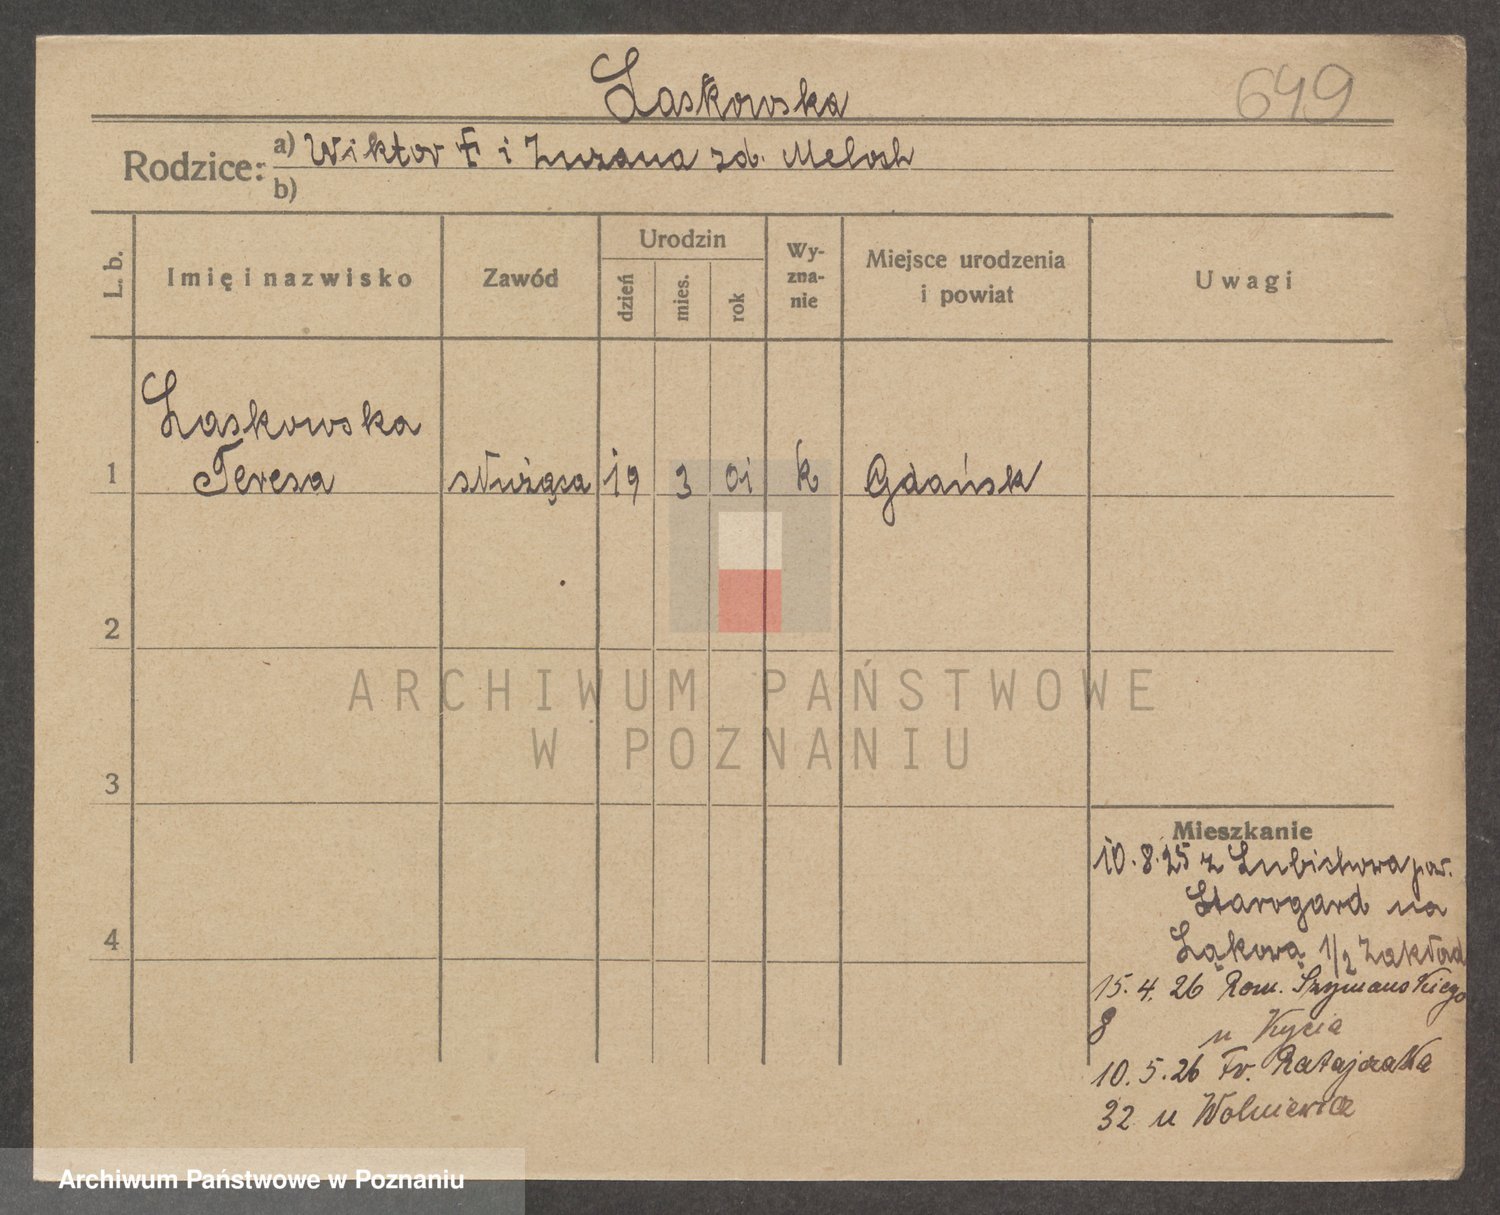 Laskowska
649
Rodzice: a) Wiktor † i Zuzana zd. Melosh
b)
L. b.
Imię i nazwisko
Zawód
Urodzin
dzień
mies.
rok
Wy-
zna-
nie
Miejsce urodzenia
i powiat
Uwagi
Laskowska
1 Teresa służąca 19 3 01 k Gdańsk
2
3
4
Mieszkanie
10.8.25 z Lubichowa pow.
Starogard na
Łąkową 1/2 Zakład
15.4.26 Rom. Szymańskiego
8 u Kycia
10.5.26 Fr. Ratajczaka
32 u Wolniewicz
ARCHIWUM PAŃSTWOWE
W POZNANIU
Archiwum Państwowe w Poznaniu